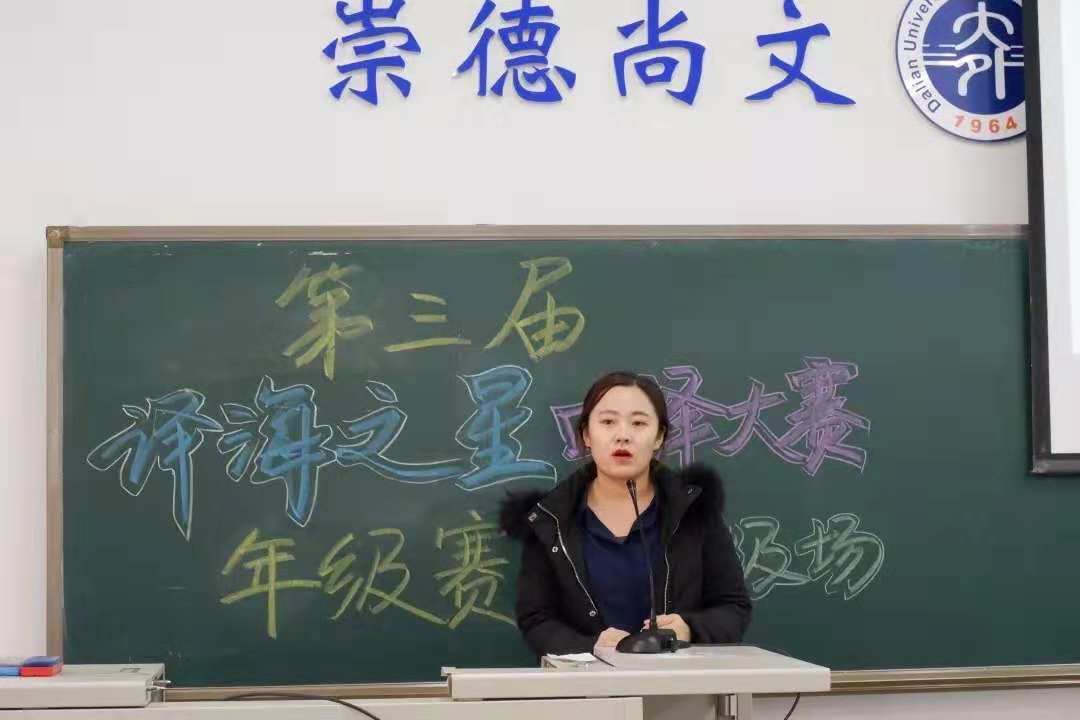 崇德尚文
Dalian Univer
大外
1964
第三届
译海之星口译大赛
年级赛
级场